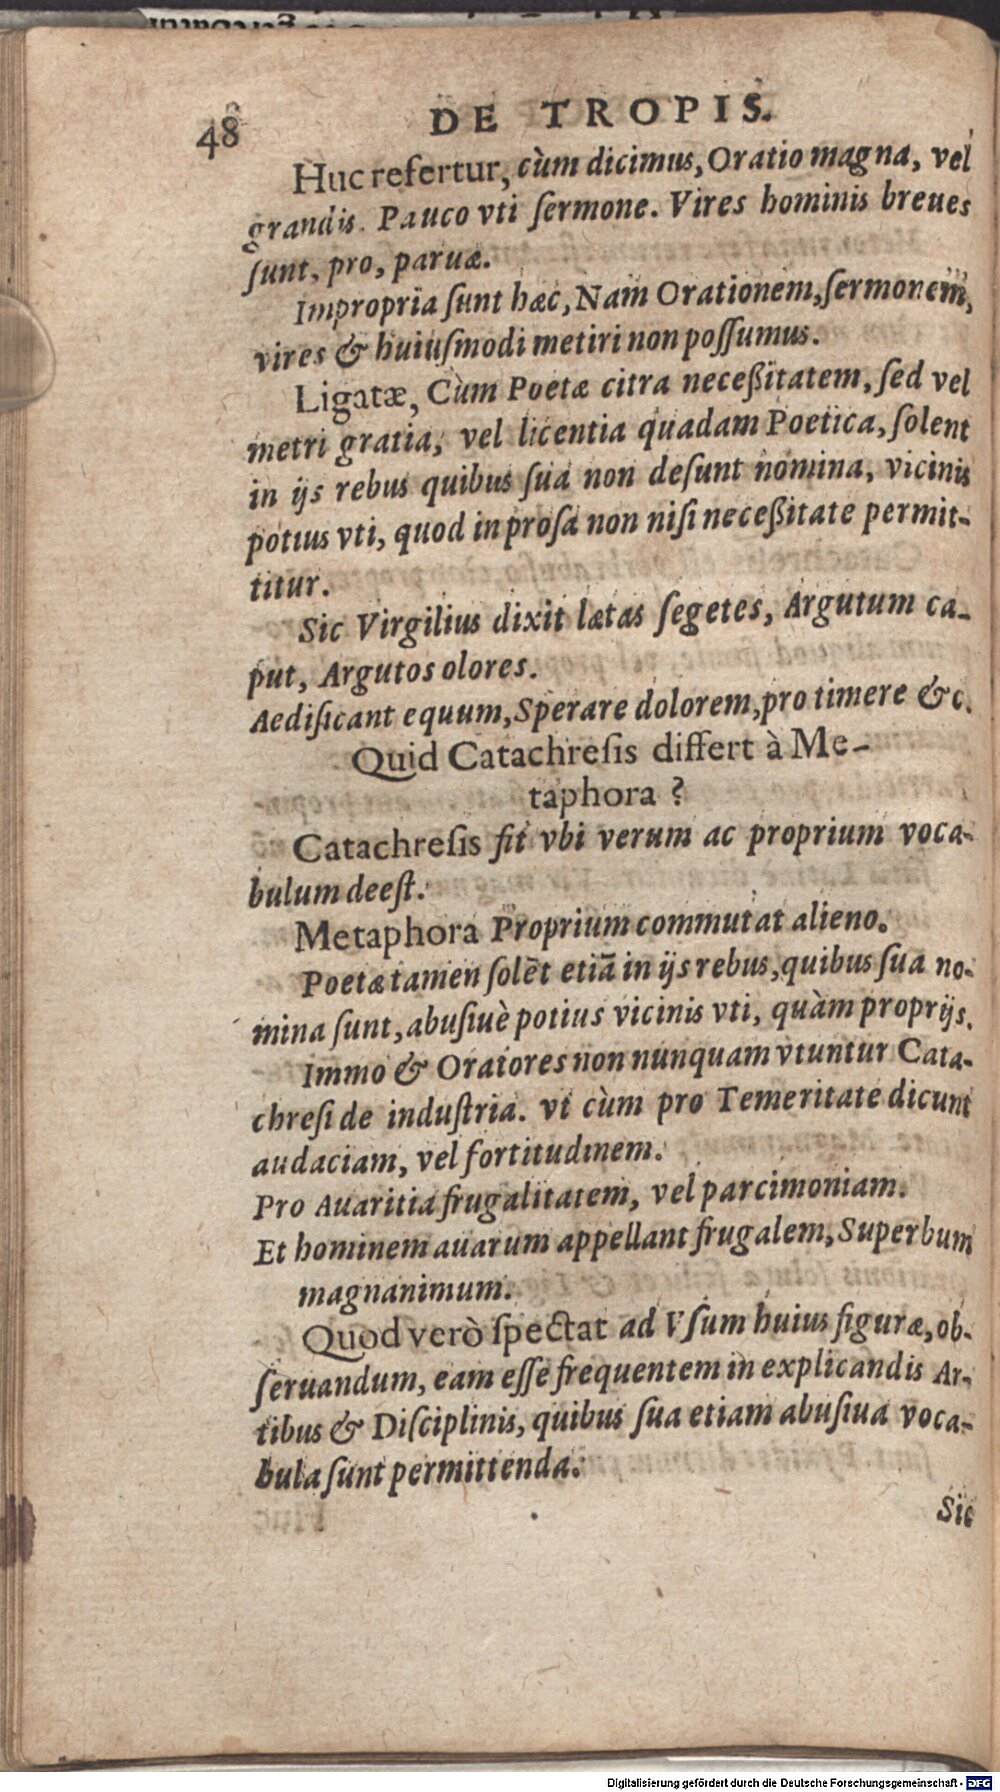 48 DE TROPIS.
Huc refertur, cùm dicimus, Oratio magna, vel
grandis. Pauco vti ſermone. Vires hominis breues
ſunt, pro, paruæ.
Impropria ſunt hæc, Nam Orationem, ſermonem,
vires & huiuſmodi metiri non poſſumus.
Ligatæ, Cùm Poetæ citra neceßitatem, ſed vel
metri gratia, vel licentia quadam Poetica, ſolent
in ijs rebus quibus ſua non deſunt nomina, vicinis
potius vti, quod in proſa non niſi neceßitate permit-
titur.
Sic Virgilius dixit lætas ſegetes, Argutum ca-
put, Argutos olores.
Aedificant equum, Sperare dolorem, pro timere &c.
Quid Catachreſis differt à Me-
taphora?
Catachreſis fit vbi verum ac proprium voca-
bulum deeſt.
Metaphora Proprium commutat alieno.
Poetæ tamen ſolēt etiā in ijs rebus, quibus ſua no-
mina ſunt, abuſiuè potius vicinis vti, quàm proprijs.
Immo & Oratores non nunquam vtuntur Cata-
chreſi de induſtria. vt cùm pro Temeritate dicunt
audaciam, vel fortitudinem.
Pro Auaritia frugalitatem, vel parcimoniam.
Et hominem auarum appellant frugalem, Superbum
magnanimum.
Quod verò ſpectat ad Vſum huius figuræ, ob-
ſeruandum, eam eſſe frequentem in explicandis Ar-
tibus & Diſciplinis, quibus ſua etiam abuſiua voca-
bula ſunt permittenda.
Sic
Digitalisierung gefördert durch die Deutsche Forschungsgemeinschaft - DFG